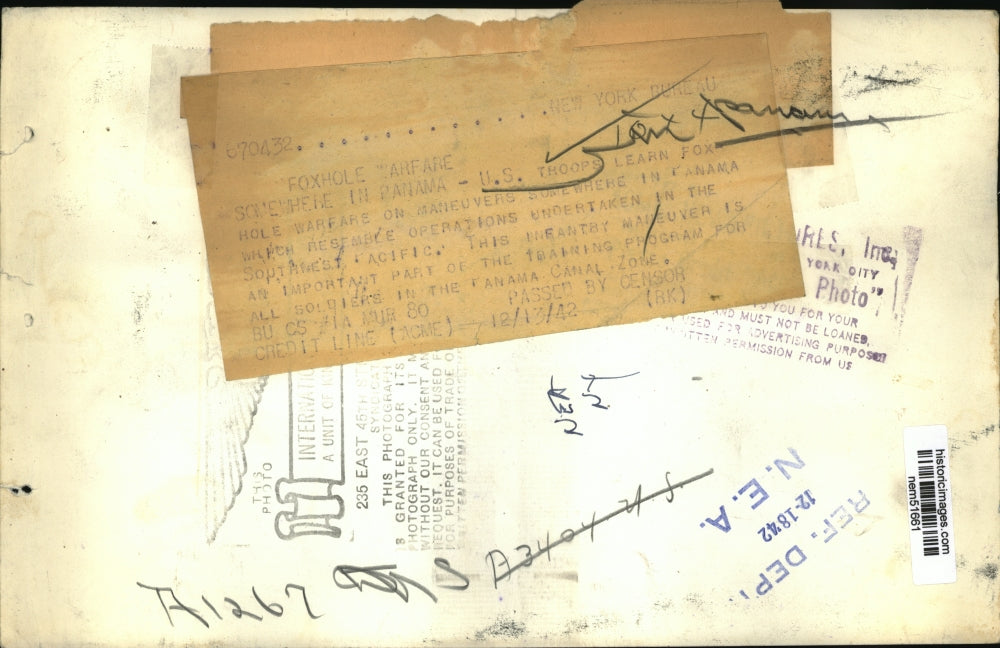 NEW YORK BUREAU
670432
FOXHOLE WARFARE
SOMEWHERE IN PANAMA - U.S. TROOPS LEARN FOX
HOLE WARFARE ON MANEUVERS SOMEWHERE IN PANAMA
WHICH RESEMBLE OPERATIONS UNDERTAKEN IN THE
SOUTHWEST PACIFIC. THIS INFANTRY MANEUVER IS
AN IMPORTANT PART OF THE TRAINING PROGRAM FOR
ALL SOLDIERS IN THE PANAMA CANAL ZONE.
BU CS 1A MUR 80 PASSED BY CENSOR
CREDIT LINE (ACME) 12/13/42 (RK)
Panama
URES, Inc.
YORK CITY
Photo"
YOU FOR YOUR
AND MUST NOT BE LOANED,
USED FOR ADVERTISING PURPOSES
WRITTEN PERMISSION FROM US
THIS
PHOTO
INTERNATI
A UNIT OF KIN
235 EAST 45TH ST
SYNDICAT
THIS PHOTOGRAPH
IS GRANTED FOR ITS
PHOTOGRAPH ONLY. IT M
WITHOUT OUR CONSENT AN
REQUEST. IT CAN BE USED F
FOR PURPOSES OF TRADE O
WRITTEN PERMISSION
NEA
NY
N. E. A.
12-18'42
REF. DEP.
A3404
A1267
historicimages.com
nem51661